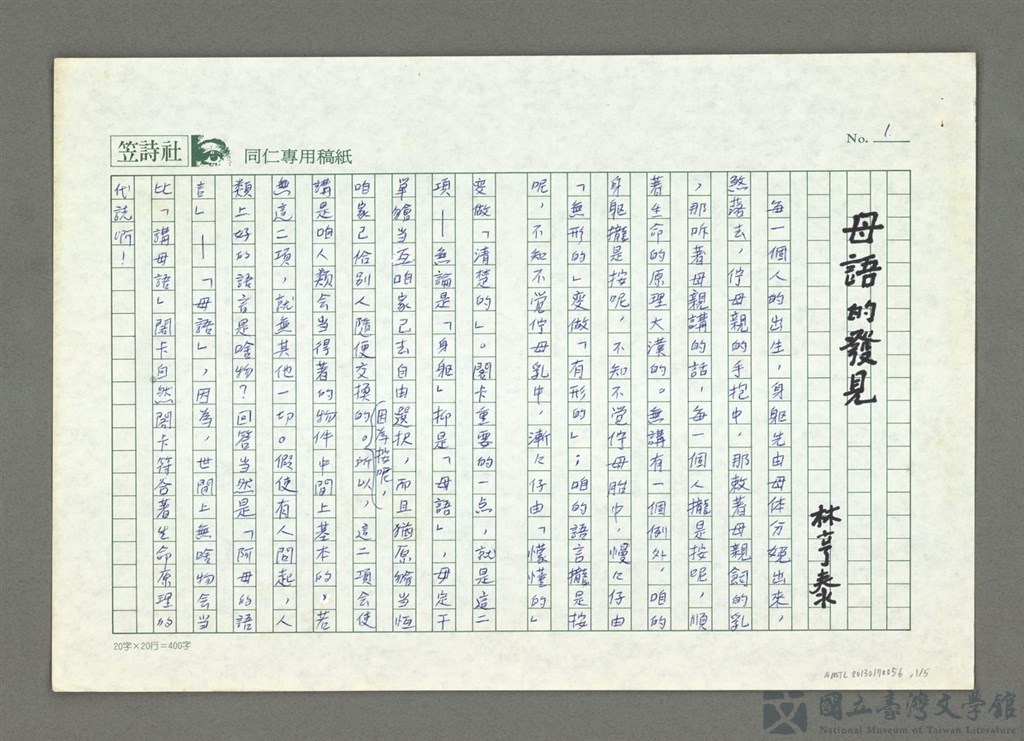 笠詩社
同仁專用稿紙
No. 1
母語的發見
林亨泰
每一個人的出生，身軀先由母体分娩出來，
煞落去，佇母親的手抱中，那敆著母親飼的乳
，那听著母親講的話，每一個人攏是按呢，順
著生命的原理大漢的。無講有一個例外，咱的
身軀攏是按呢，不知不覺佇母胎中，慢々仔由
「無形的」变做「有形的」；咱的語言攏是按
呢，不知不覺佇母乳中，漸々仔由「懞懂的」
变做「清楚的」。閣卡重要的一点，就是這二
項——無論是「身軀」抑是「母語」，毋定干
單會当互咱家己去自由選択，而且猶原會当恆
咱家己佮別人隨便交換的。因為按呢，所以，這二項会使
講是咱人類会当得著的物件中間上基本的，若
無這二項，就無其他一切。假使有人問起，人
類上好的語言是啥物？回答当然是「阿母的語
言」——「母語」，因為，世間上無啥物会当
比「講母語」閣卡自然閣卡符合著生命原理的
代誌啊！
20字×20行=400字
NMTL 20130170056, 1/5
國立臺灣文學館
National Museum of Taiwan Literature